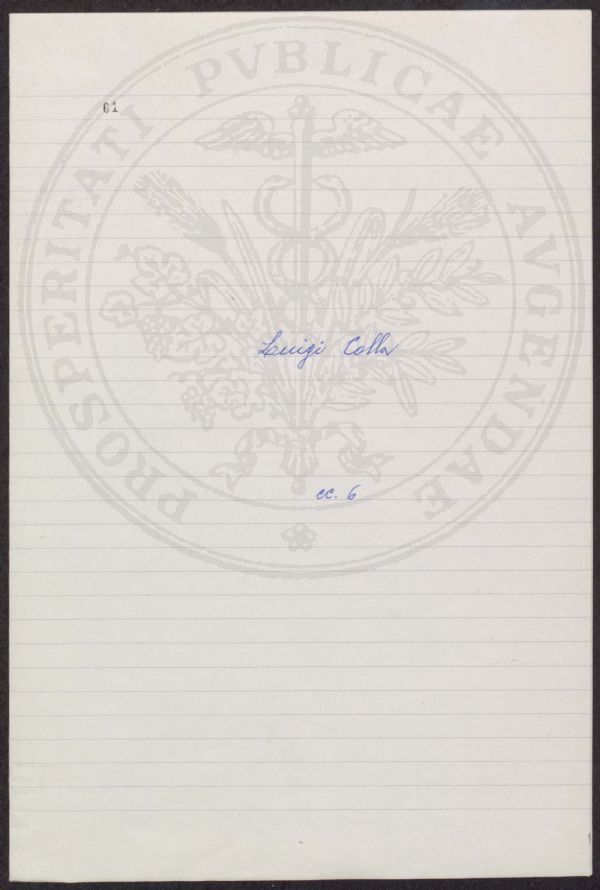 61
PROSPERITATI PVBLICAE AVGENDAE
Luigi Colla
cc. 6